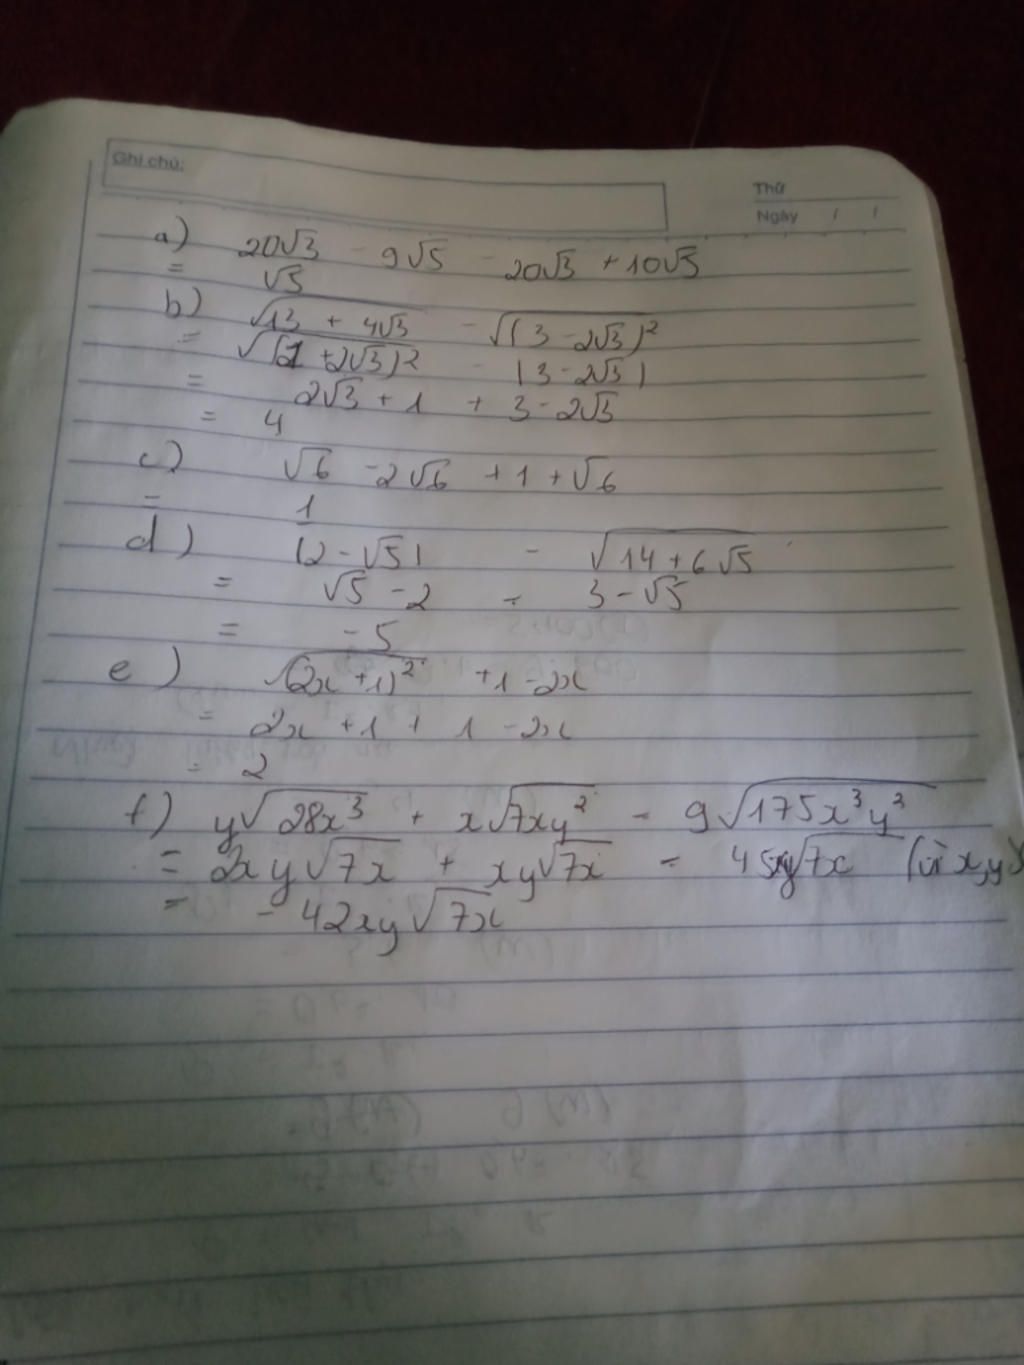 Ghi chú:
Thứ
Ngày / /
a) 20√3 - 9√5 - 20√3 + 10√5
= √5
b) √(13 + 4√3) - √((3 - 2√3)²)
= √((1 + 2√3)²) - |3 - 2√3|
= 2√3 + 1 + 3 - 2√3
= 4
c) √6 - 2√6 + 1 + √6
= 1
d) |2 - √5| - √(14 + 6√5)
= √5 - 2 - 3 - √5
= -5
e) √((2x + 1)²) + 1 - 2x
= 2x + 1 + 1 - 2x
= 2
f) y√(28x³) + x√(7xy²) - 9√(175x³y²)
= 2xy√7x + xy√7x - 45xy√7x (vì x,y
= -42xy√7x